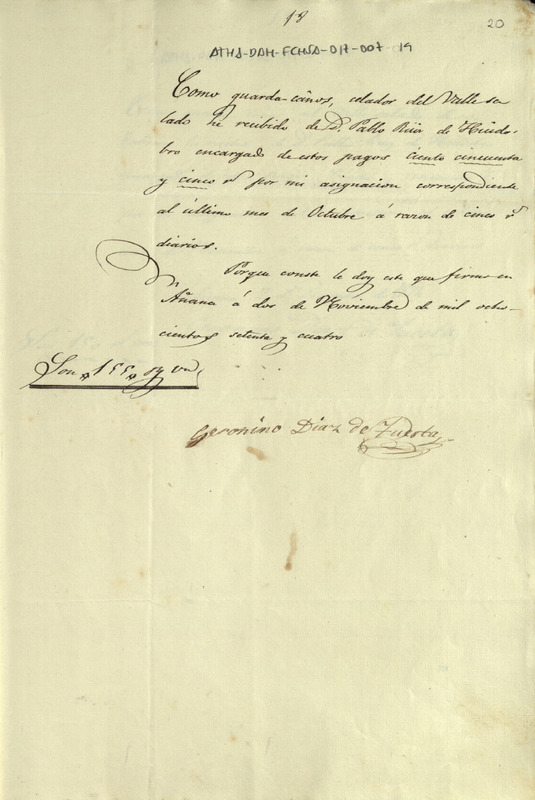 18
20
ATHA-DAH-FCHSA-017-007-19
Como guarda-caños, celador del Valle sa
lado he recibido de D. Pablo Ruiz de Huido-
bro encargado de estos pagos ciento cincuenta
y cinco rs por mi asignacion correspondiente
al último mes de Octubre á razon de cinco rs
diarios.
Porque conste le doy este que firmo en
Añana á dos de Noviembre de mil ocho-
cientos setenta y cuatro
Son 155 rs vn
Geronino Diaz de Tuesta